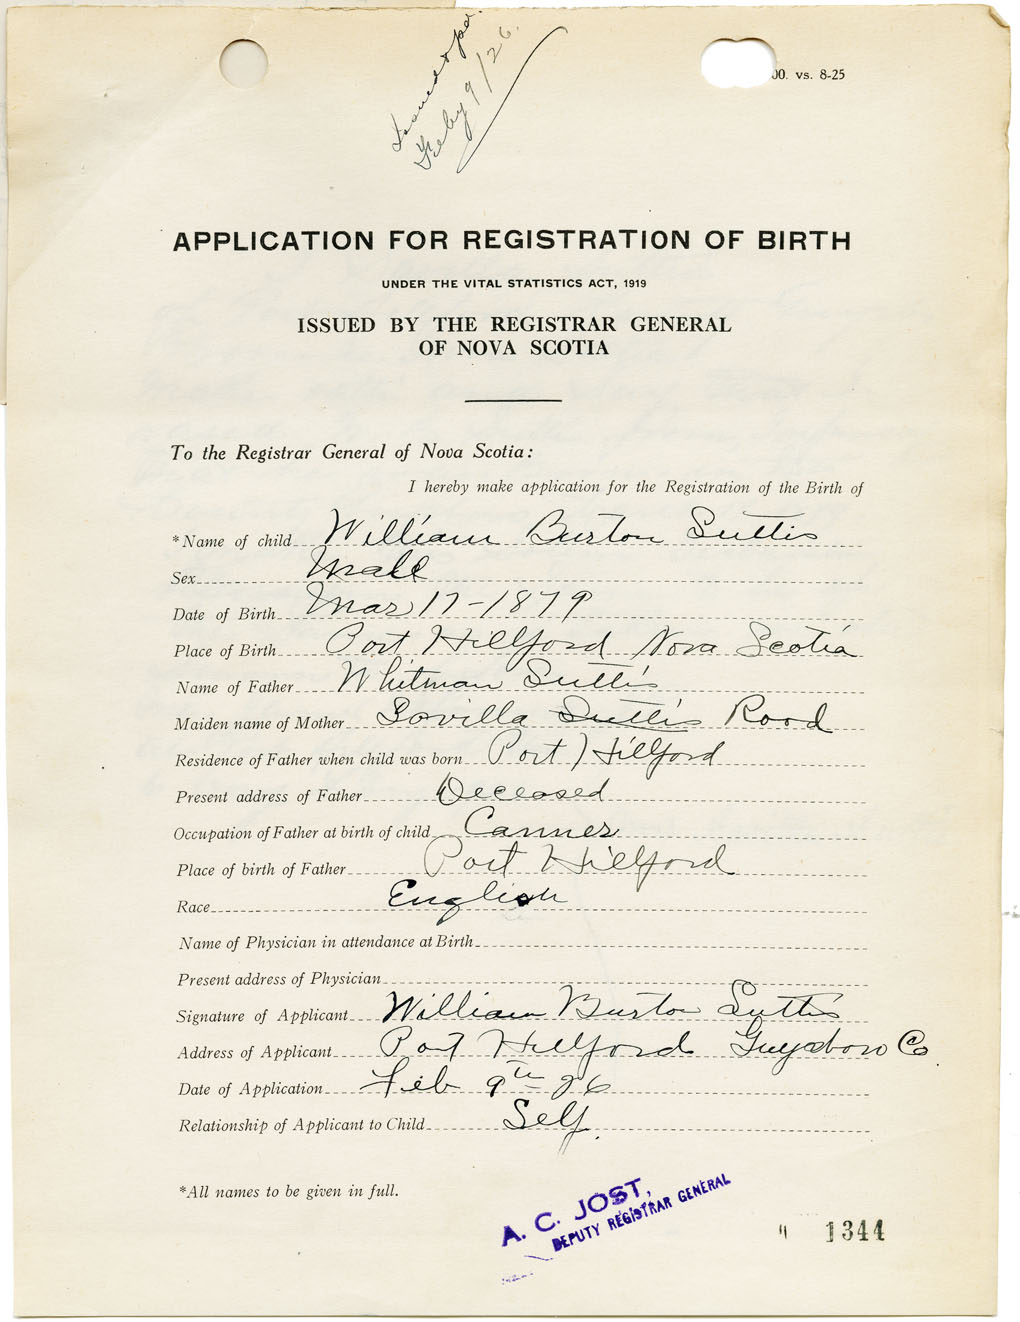 Issued & pd.
Feby 9/26.
00. vs. 8-25
APPLICATION FOR REGISTRATION OF BIRTH
UNDER THE VITAL STATISTICS ACT, 1919
ISSUED BY THE REGISTRAR GENERAL
OF NOVA SCOTIA
To the Registrar General of Nova Scotia:
I hereby make application for the Registration of the Birth of
*Name of child William Burton Suttis
Sex Male
Date of Birth Mar 17-1879
Place of Birth Port Hillford Nova Scotia
Name of Father Whitman Suttis
Maiden name of Mother Lovilla Suttis Rood
Residence of Father when child was born Port Hillford
Present address of Father Deceased
Occupation of Father at birth of child Canner
Place of birth of Father Port Hillford
Race English
Name of Physician in attendance at Birth
Present address of Physician
Signature of Applicant William Burton Suttis
Address of Applicant Port Hillford Guysboro Co
Date of Application Feb 9th 26
Relationship of Applicant to Child Self.
*All names to be given in full.
A. C. JOST,
DEPUTY REGISTRAR GENERAL
1344